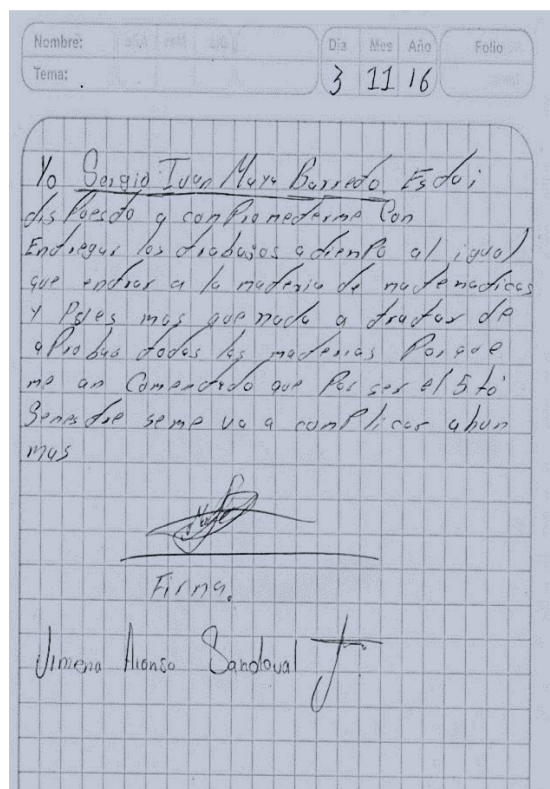 Nombre: Dia Mes Año Folio
Tema: 3 11 16
Yo Sergio Ivan Maya Barredo. Esdoi
dis Poesdo a comPromederme Con
Endregar los drabajos a diemPo al igual
que endrar a la maderia de madematicas
y Pues mas que nada a dradar de
aProbar dodas las maderias Porque
me an Comendado que Por ser el 5 to
Semesdre seme va a comPlicar ahun
mas
Firma.
Jimena Alonso Sandoval